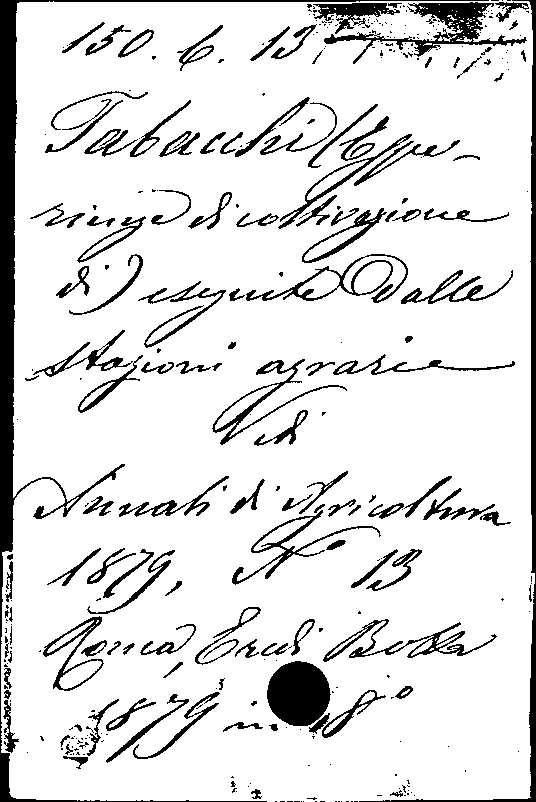 150. 6. 13
Tabacchi (Espe-
rienze di coltivazione
di) eseguite Dalle
stazioni agrarie
Vedi
Annali di Agricoltura
1879, N° 13
Roma, Eredi Botta
1879 in 8°